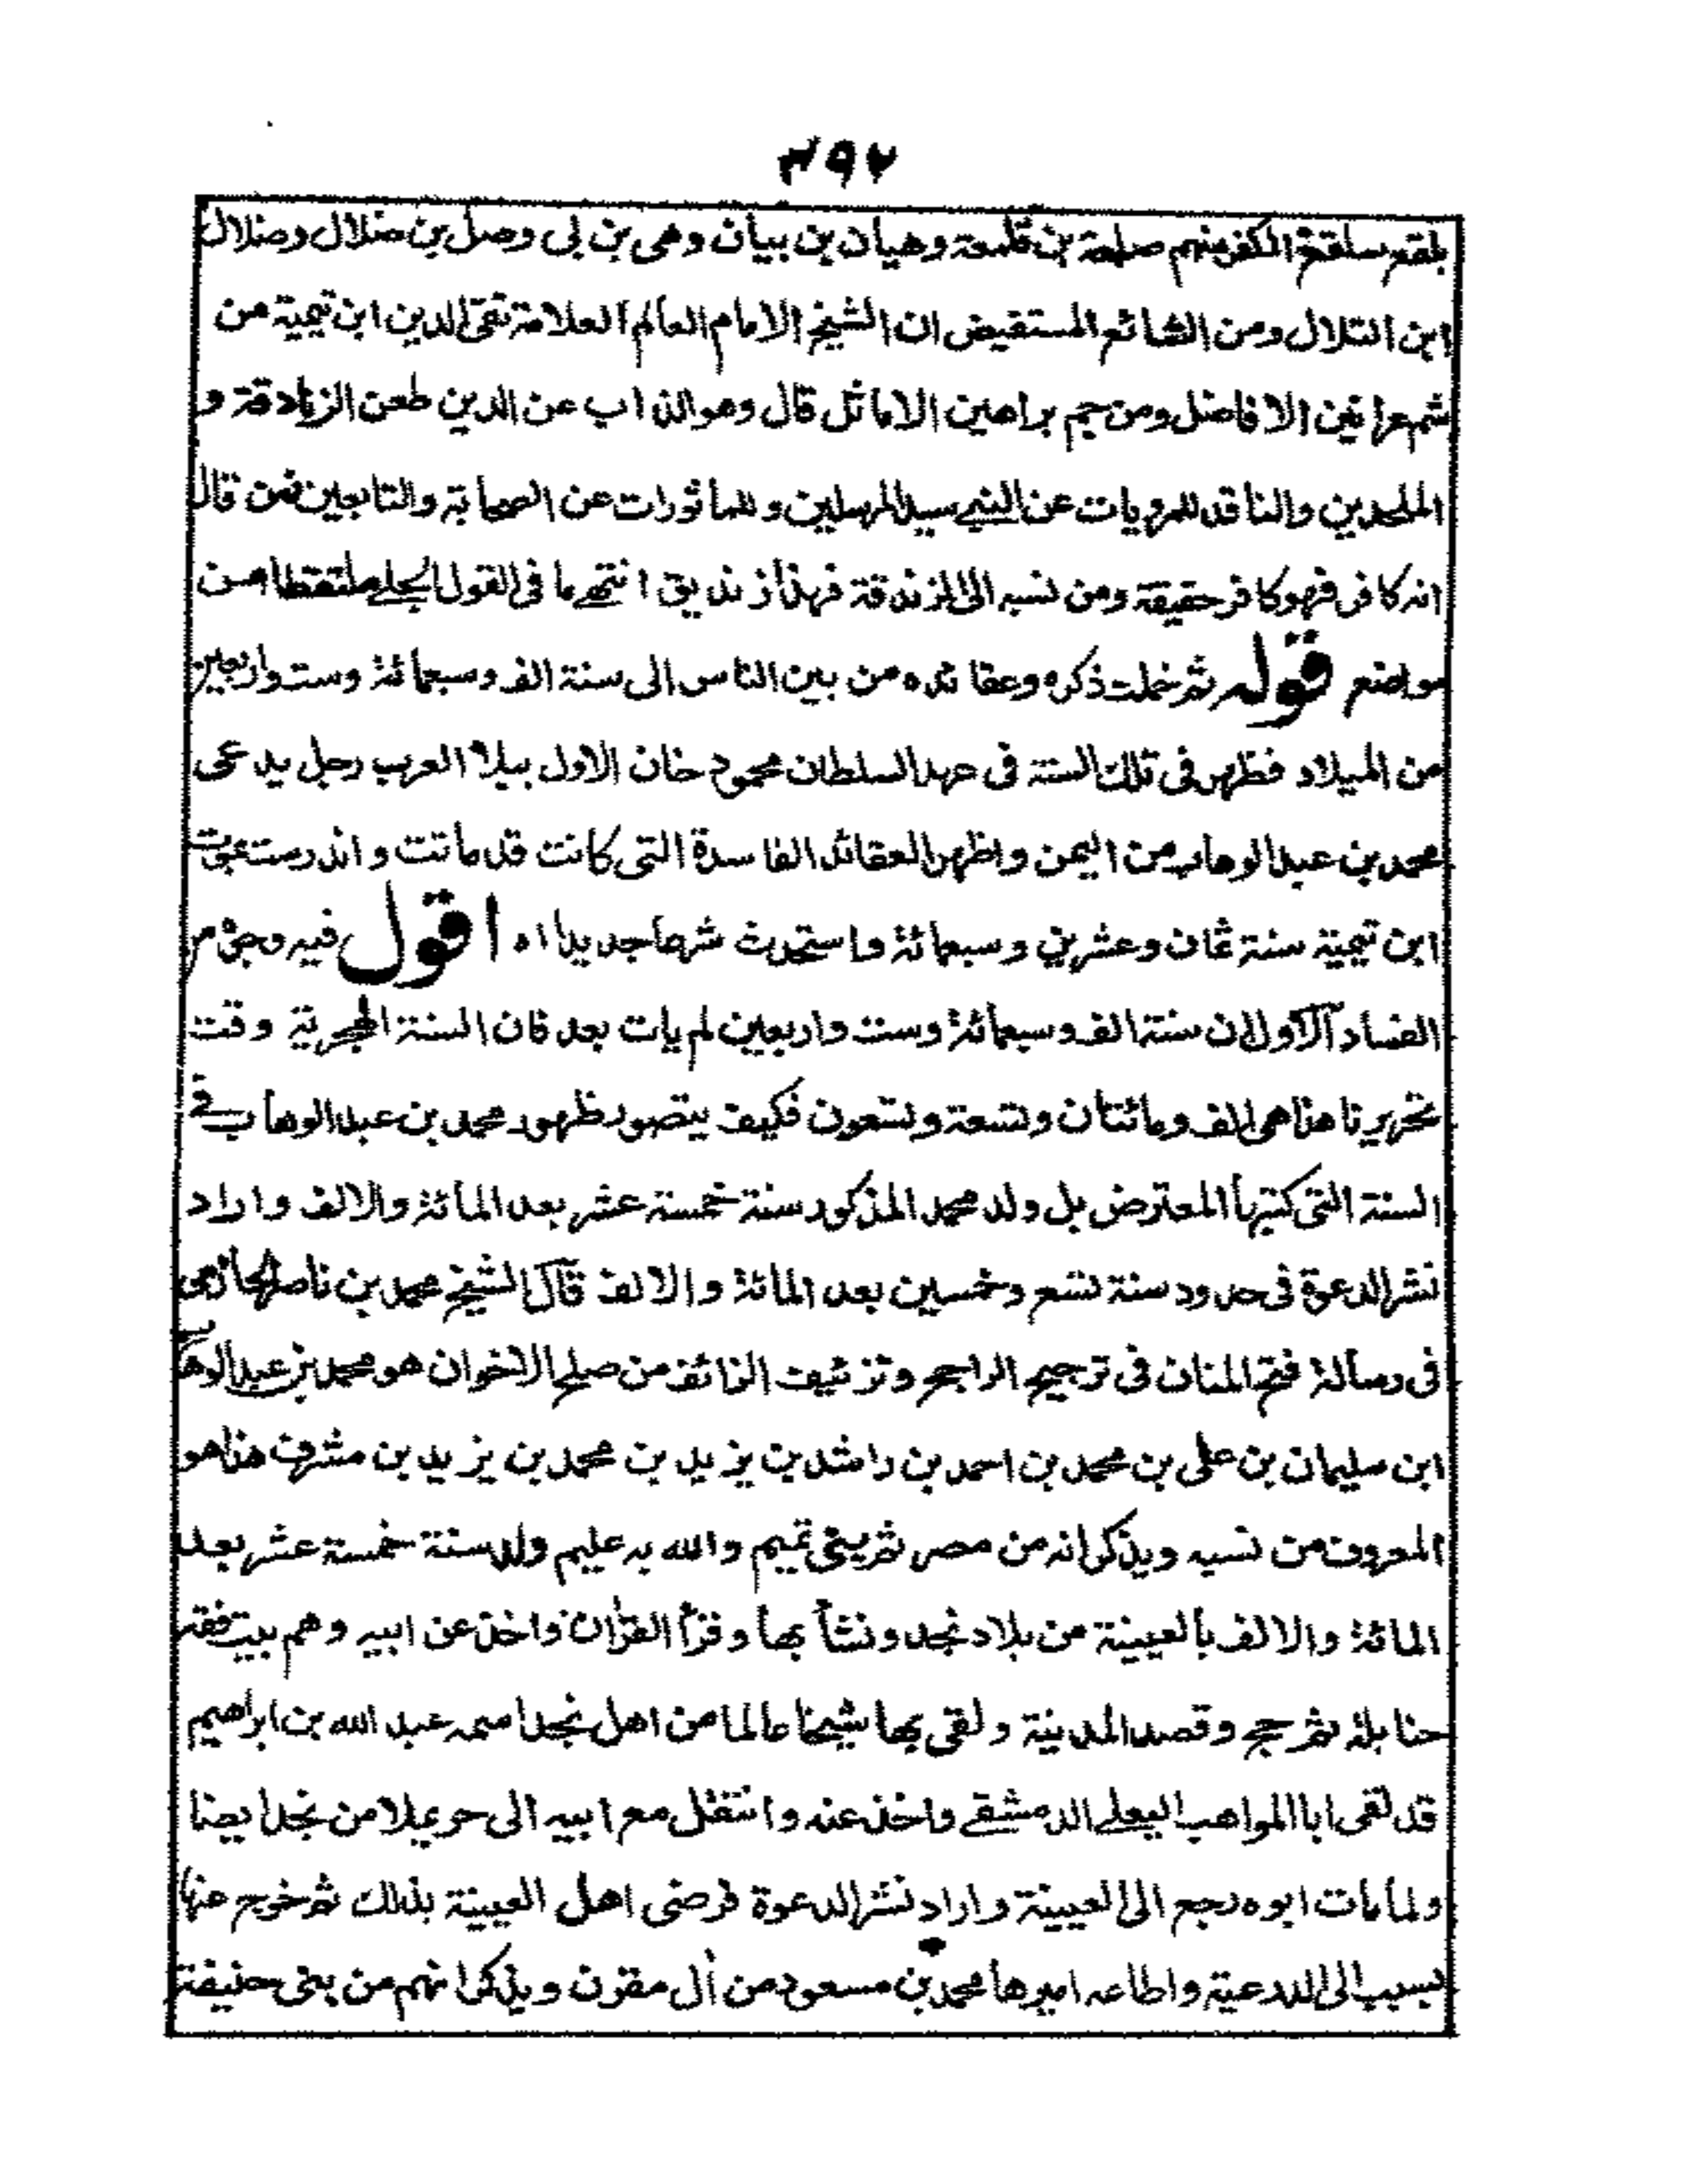 ٤٩٧
بلقم سلقم المكفر منهم صلمعة بن قلمعة وهيان بن بيان وهي بن بي وصل بن ضلال وضلال
ابن التلال ومن الشائع المستفيض ان الشيخ الامام العالم العلامة تقي الدين ابن تيمية من
شم عرانين الافاضل ومن جم براهين الاماثل قال وهو الذاب عن الدين طعن الزنادقة و
الملحدين والناقد للمرويات عن النبي سيد المرسلين وللماثورات عن الصحابة والتابعين فمن قال
انه كافر فهو كافر حقيقة ومن نسبه الى الزندقة فهذا زنديق انتهى ما في القول الجلي ملتقطا من
مواضع قوله ثم خملت ذكره وعقائده من بين الناس الى سنة الف وسبعمائة وست واربعين
من الميلاد فظهر في تلك السنة في عهد السلطان محمود خان الاول ببلاد العرب رجل يدعى
محمد بن عبد الوهاب من اليمن واظهر العقائد الفاسدة التي كانت قد ماتت واندرست بموت
ابن تيمية سنة ثمان وعشرين وسبعمائة واستحدث شرعا جديدا اه اقول فيه وجوه من
الفساد الاول ان سنة الف وسبعمائة وست واربعين لم يات بعد فان السنة الهجرية وقت
تحريرنا هذا هي الف ومائتان وتسعة وتسعون فكيف يتصور ظهور محمد بن عبد الوهاب في
السنة التي كتبها المعترض بل ولد محمد المذكور سنة خمسة عشر بعد المائة والالف واراد
نشر الدعوة في حدود سنة تسع وخمسين بعد المائة والالف قال الشيخ محمد بن ناصر الحازمي
في رسالة فتح المنان في ترجيح الراجح وتزئيف الزائف من صلح الاخوان هو محمد بن عبد الوهاب
ابن سليمان بن علي بن محمد بن احمد بن راشد بن يزيد بن محمد بن يزيد بن مشرف هذا هو
المعروف من نسبه ويذكر انه من مضر ثم بني تميم والله به عليم ولد سنة خمسة عشر بعد
المائة والالف بالعيينة من بلاد نجد ونشأ بها وقرأ القرآن واخذ عن ابيه وهم بيت فقه
حنابلة ثم حج وقصد المدينة ولقى بها شيخا عالما من اهل نجد اسمه عبد الله بن ابراهيم
قد لقى ابا المواهب البعلي الدمشقي واخذ عنه وانتقل مع ابيه الى حريملا من نجد ايضا
ولما مات ابوه رجع الى العيينة واراد نشر الدعوة فرضى اهل العيينة بذلك ثم خرج عنها
بسبب الى الدرعية واطاعه اميرها محمد بن مسعود من آل مقرن ويذكر انهم من بني حنيفة